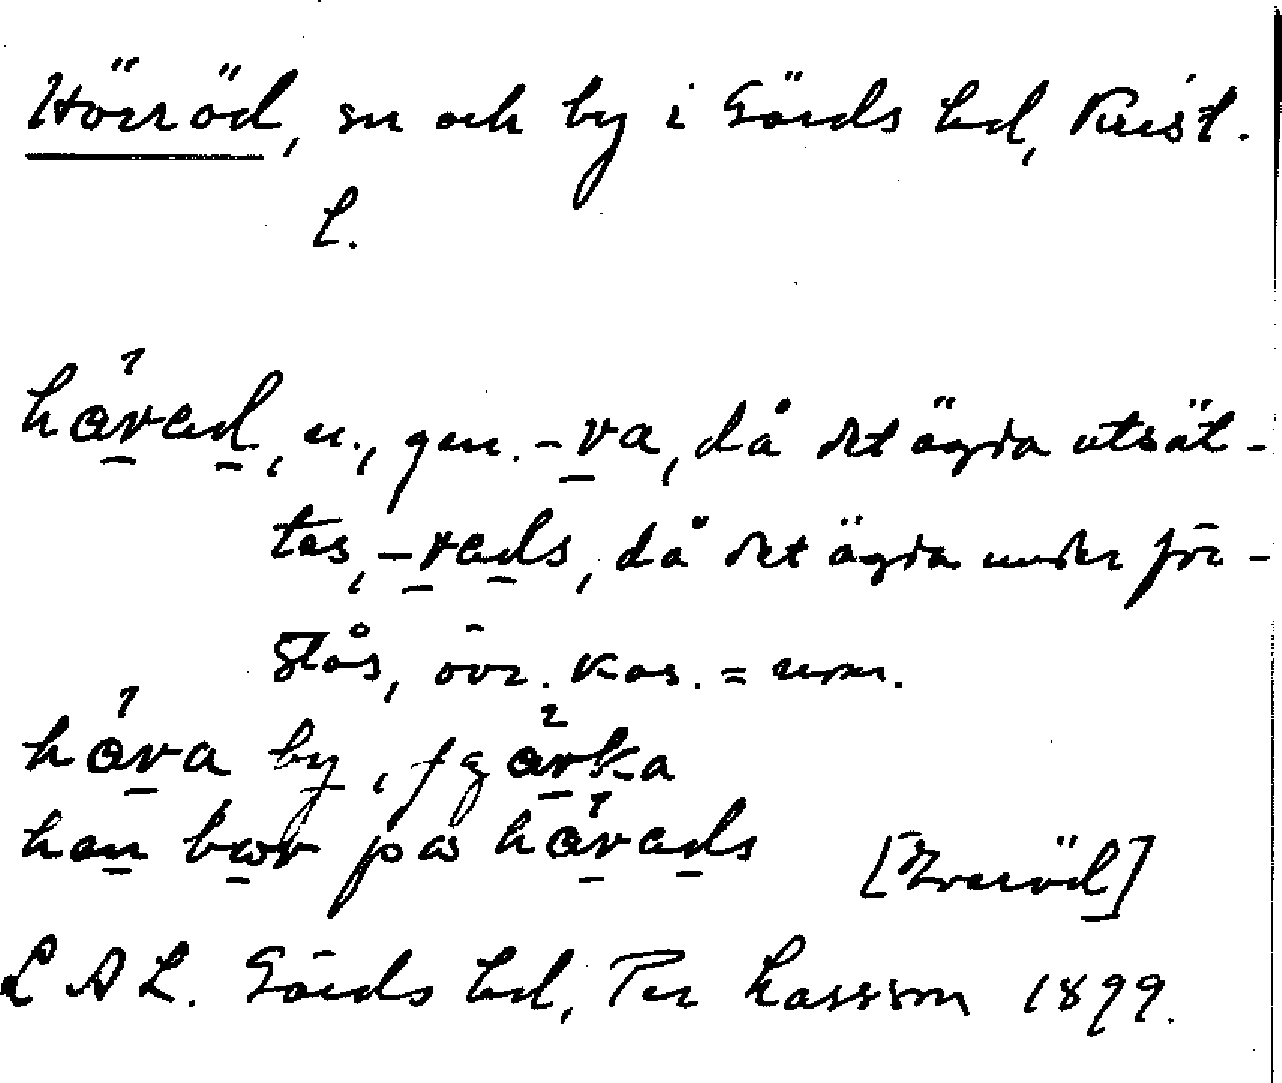 Hörröd, sn och by i Gärds hd, Krist.
L.
håvad, n., gen. -va, då det ägda utsät-
tes, -vads, då det ägda under för-
stås, övr. kas. = nom.
håva by,
han bor på håvads
LAL. Gärds hd, Per Larsson 1899.